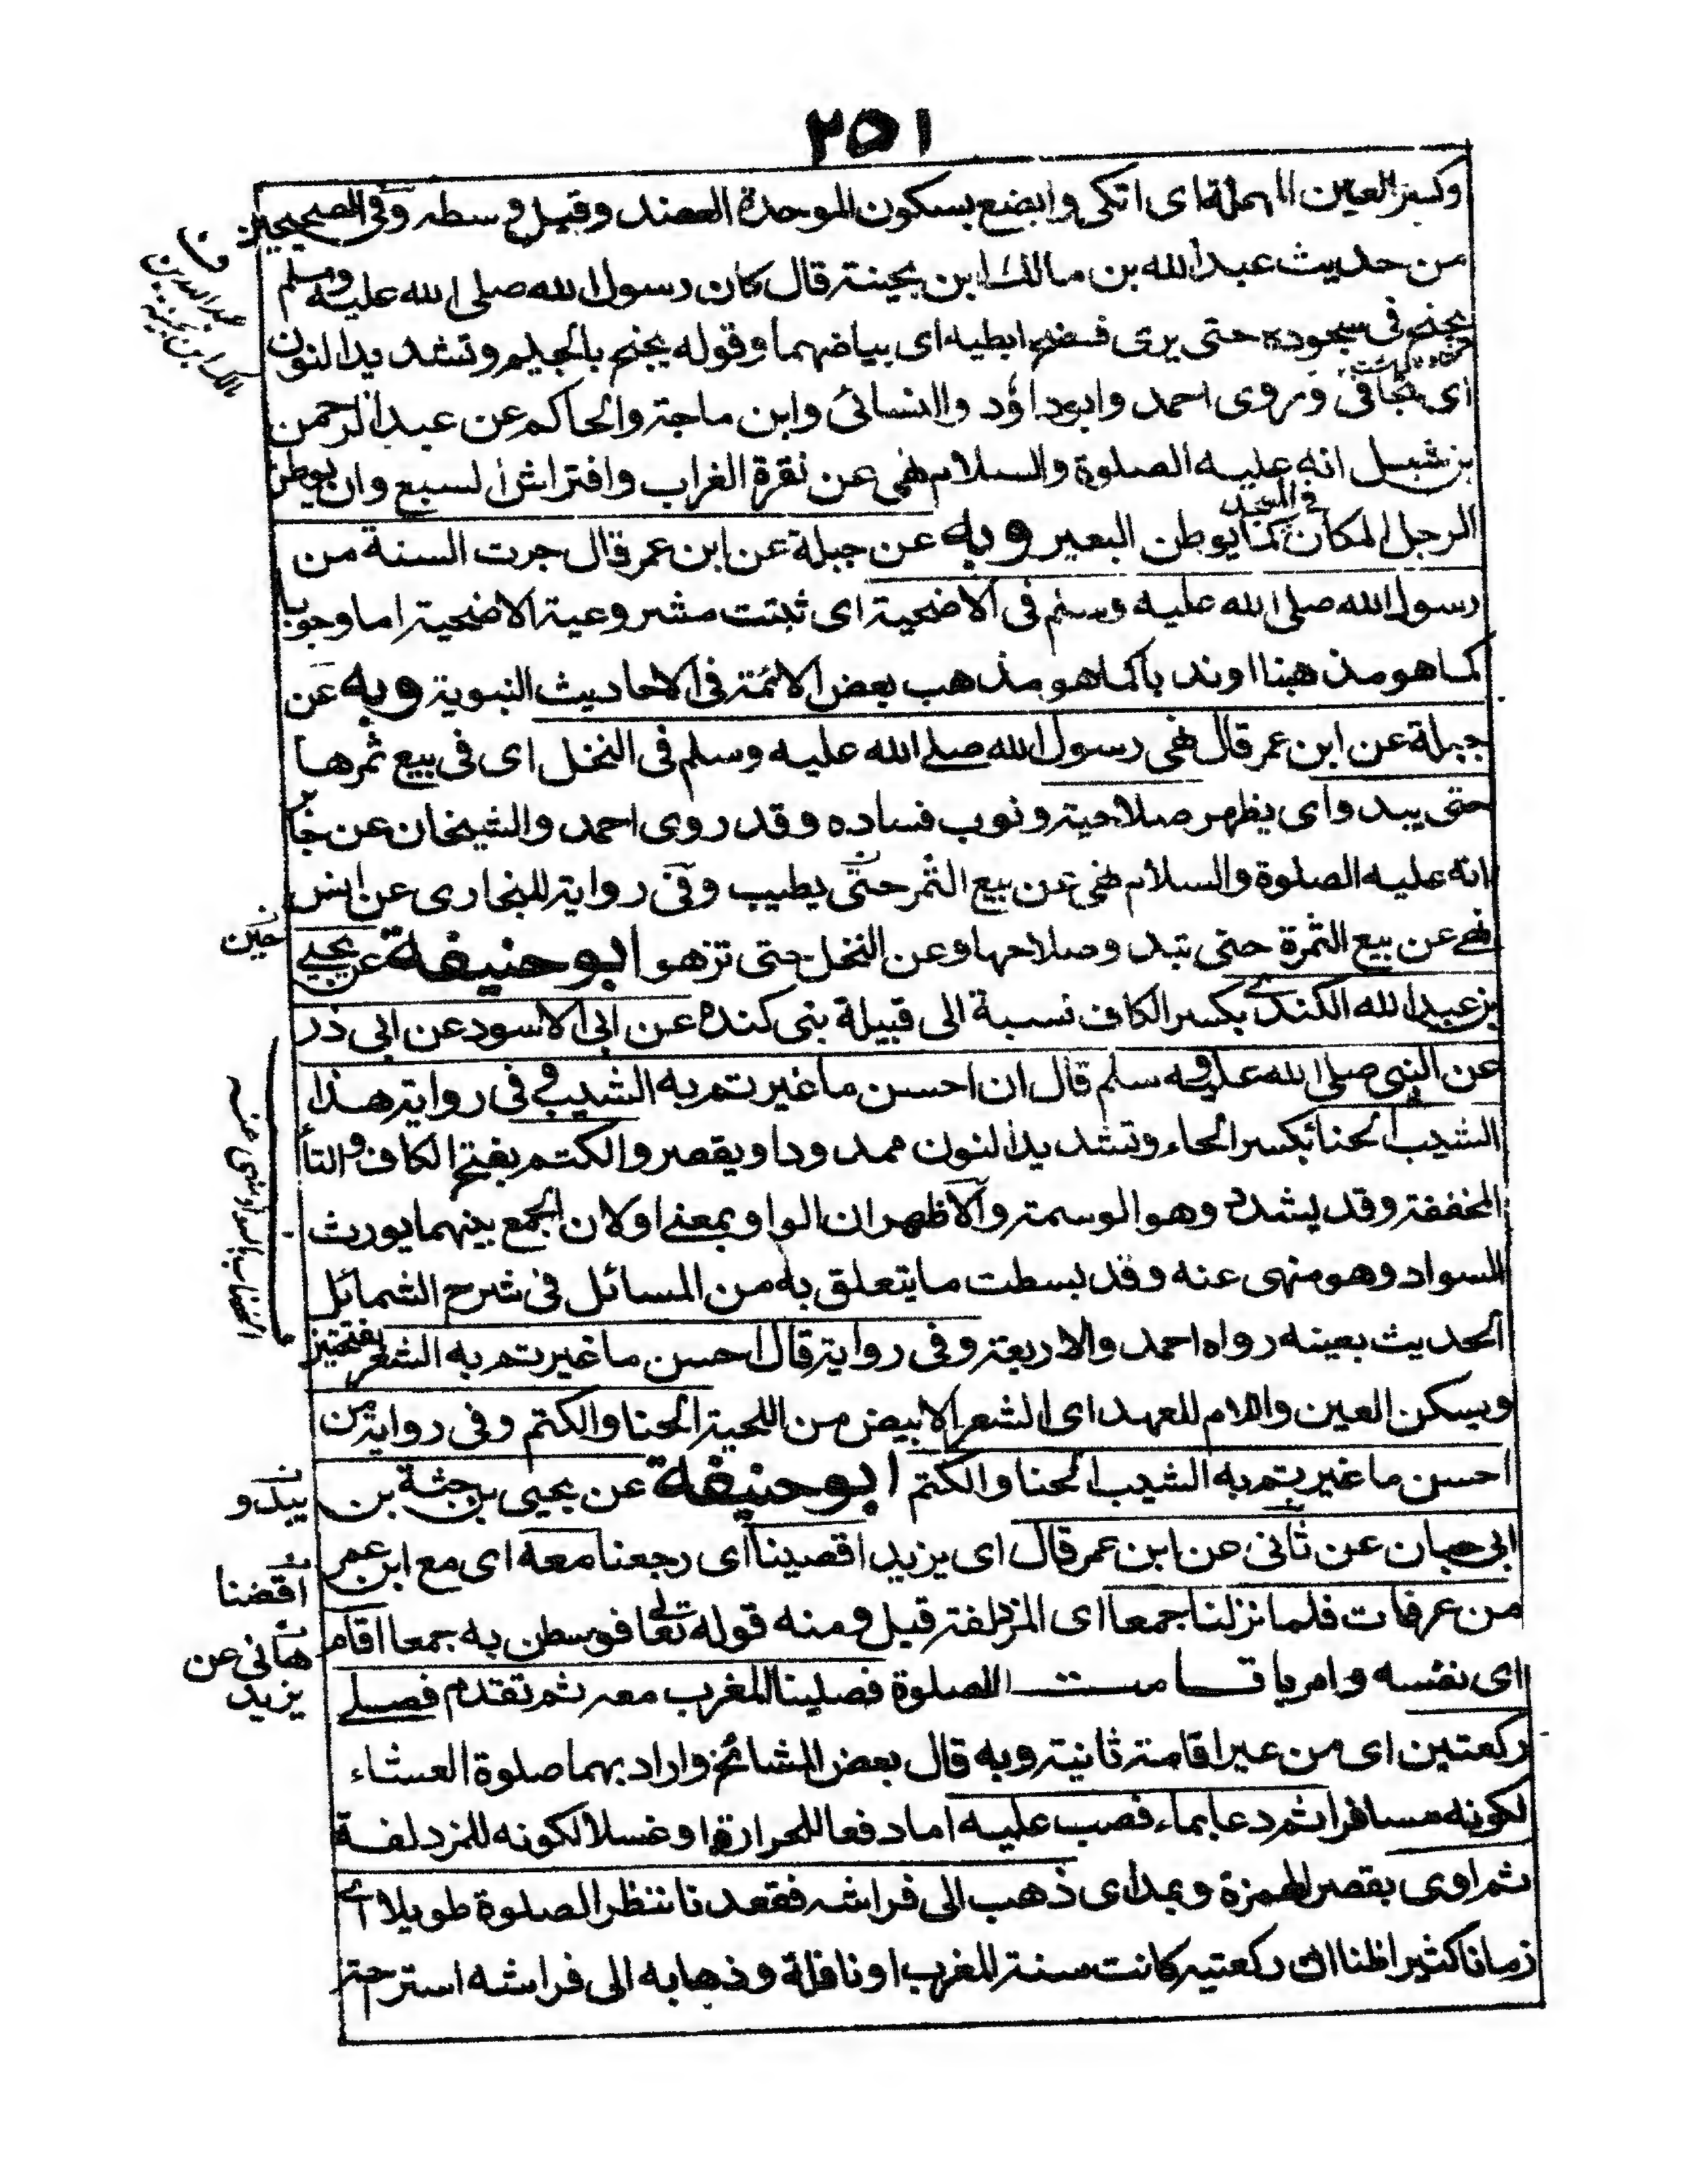 ٢٥١
وكسر العين المهملة اى اتكى وابضع بسكون الموحدة العضد وقيل وسطه وفى الصحيحين
من حديث عبد الله بن مالك ابن بحينة قال كان رسول الله صلى الله عليه وسلم
يجنح فى سجوده حتى يرى فضح ابطيه اى بياضهما وقوله يجنح بالجيم وتشديد النون
اى يجافى وروى احمد وابو داؤد والنسائى وابن ماجة والحاكم عن عبد الرحمن
بن شبل انه عليه الصلوة والسلام نهى عن نقرة الغراب وافتراش السبع وان يوطن
الرجل المكان فى المسجد كما يوطن البعير وبه عن جبلة عن ابن عمر قال جرت السنة من
رسول الله صلى الله عليه وسلم فى الاضحية اى ثبتت مشروعية الاضحية اما وجوبا
كما هو مذهبنا او ندبا كما هو مذهب بعض الائمة فى الاحاديث النبوية وبه عن
جبلة عن ابن عمر قال نهى رسول الله صلے الله عليه وسلم فى النخل اى فى بيع ثمرها
حتى يبدو اى يظهر صلاحيته ونوب فساده وقد روى احمد والشيخان عن جابر
انه عليه الصلوة والسلام نهى عن بيع الثمر حتى يطيب وفى رواية للبخارى عن انس
نهے عن بيع الثمرة حتى تبدو صلاحها وعن النخل حتى تزهو ابو حنيفة عن يحيے
بن عبد الله الكندے بكسر الكاف نسبة الى قبيلة بنى كنده عن ابى الاسود عن ابى ذر
عن النبى صلى الله عليه وسلم قال ان احسن ما غيرتم به الشيب وفى رواية هذا
الشيب الحنا بكسر الحاء وتشديد النون ممدودا ويقصر والكتم بفتح الكاف والتأ
المخففة وقد يشدد وهو الوسمة والاظهر ان الواو بمعنى او لان الجمع بينهما يورث
السواد وهو منهى عنه وقد بسطت ما يتعلق به من المسائل فى شرح الشمائل
الحديث بعينه رواه احمد والاربعة وفى رواية قال احسن ما غيرتم به الشعر بفتحتين
ويسكن العين واللام للعهد اى الشعر الابيض من اللحية الحنا والكتم وفى رواية من
احسن ما غيرتم به الشيب الحنا والكتم ابو حنيفة عن يحيى بن جثة بن
ابى حبان عن ثانى عن ابن عمر قال اى يزيد اقصينا اى رجعنا معه اى مع ابن عمر
من عرفات فلما نزلنا جمعا اى المزدلفة قيل ومنه قوله تعالى فوسطن به جمعا اقام
اى نفسه وامر باقامت الصلوة فصلينا المغرب معه ثم تقدم فصلے
ركعتين اى من غير اقامة ثانية وبه قال بعض المشائخ واراد بهما صلوة العشاء
لكونه مسافرا ثم دعا بماء فصب عليه اما دفعا للحرارة او غسلا لكونه للمزدلفة
ثم اوى بقصر الهمزة ويمد اى ذهب الى فراشه فقعدنا ننتظر الصلوة طويلا اے
زمانا كثيرا ظنا ان ركعتيه كانت سنة المغرب او نافلة وذهابه الى فراشه استرحتر
حين
يبدو
اقضنا
هانى عن
يزيد